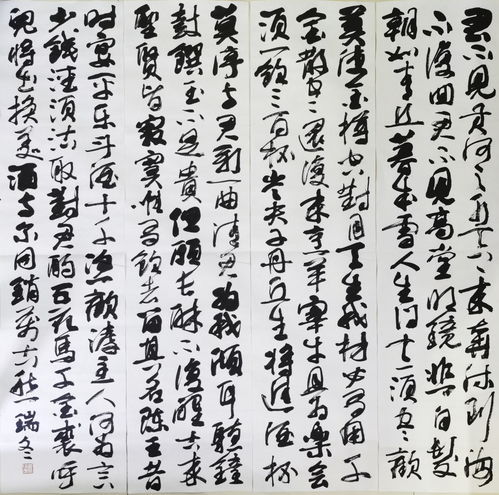 君不見黃河之水天上來奔流到海
不復回君不見高堂明鏡悲白髮
朝如青絲暮成雪人生得意須盡歡
莫使金樽空對月天生我材必有用千
金散盡還復來烹羊宰牛且為樂會
須一飲三百杯岑夫子丹丘生將進酒杯
莫停與君歌一曲請君為我傾耳聽鐘
鼓饌玉不足貴但願長醉不復醒古來
聖賢皆寂寞惟有飲者留其名陳王昔
時宴平樂斗酒十千恣歡謔主人何為言
少錢徑須沽取對君酌五花馬千金裘呼
兒將出換美酒與爾同銷萬古愁 瑞冬